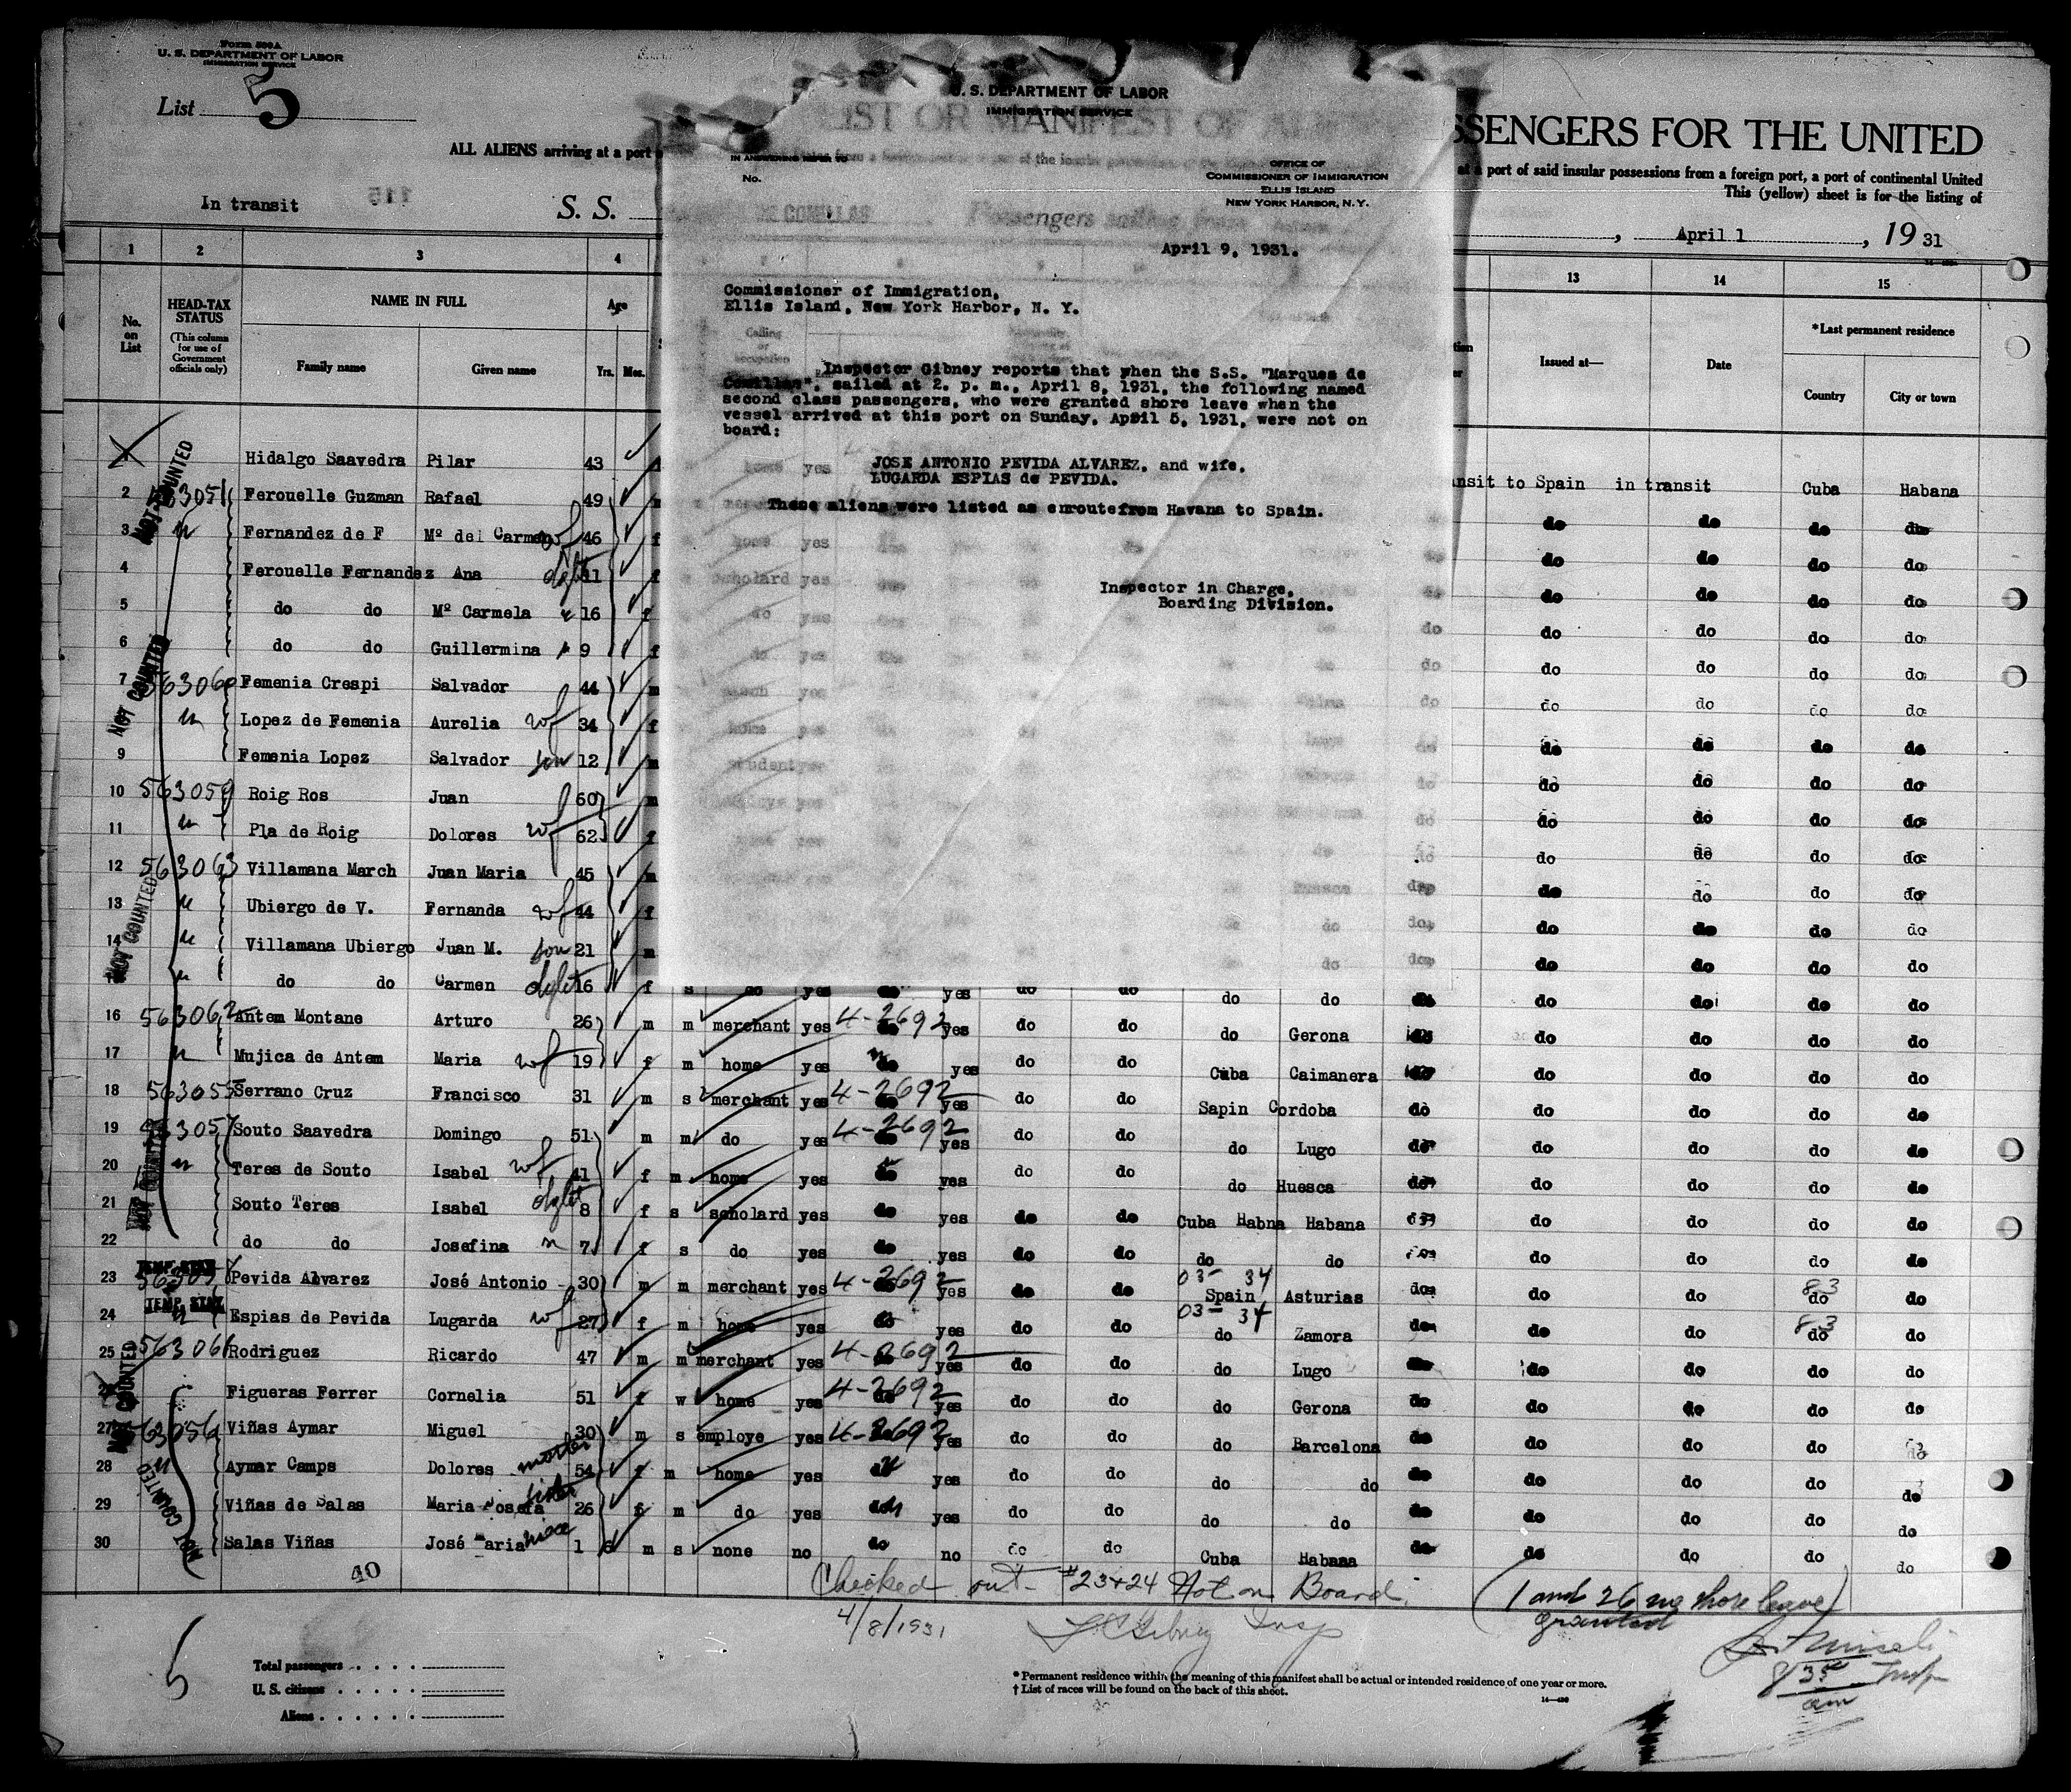 Form 500A
U. S. DEPARTMENT OF LABOR
IMMIGRATION SERVICE
List 5
ALL ALIENS arriving at a port
In transit
115
S. S.
LIST OR MANIFEST OF ALIEN
SSENGERS FOR THE UNITED
at a port of said insular possessions from a foreign port, a port of continental United
This (yellow) sheet is for the listing of
, April 1, 19 31
U. S. DEPARTMENT OF LABOR
IMMIGRATION SERVICE
IN ANSWERING REFER TO
No.
OFFICE OF
COMMISSIONER OF IMMIGRATION
ELLIS ISLAND
NEW YORK HARBOR, N. Y.
DE COMILLAS Passengers sailing from
April 9, 1931.
Commissioner of Immigration,
Ellis Island, New York Harbor, N. Y.
Inspector Gibney reports that when the S.S. "Marques de
Comillas", sailed at 2. p. m., April 8, 1931, the following named
second class passengers, who were granted shore leave when the
vessel arrived at this port on Sunday, April 5, 1931, were not on
board:
JOSE ANTONIO PEVIDA ALVAREZ, and wife,
LUGARDA ESPIAS de PEVIDA.
These aliens were listed as enroute from Havana to Spain.
Inspector in Charge,
Boarding Division.
1 2 3 4 13 14 15
No. on List
HEAD-TAX STATUS
(This column for use of Government officials only)
NAME IN FULL
Family name Given name
Age
Yrs. Mos.
Issued at— Date
*Last permanent residence
Country City or town
Hidalgo Saavedra Pilar 43 nsit to Spain in transit Cuba Habana
2 63051 Ferouelle Guzman Rafael 49 do do do do
3 " Fernandez de F Mº del Carmen wf 46 f do do do do
4 Ferouelle Fernandez Ana dght 11 f do do do do
5 do do Mº Carmela " 16 f do do do do
6 do do Guillermina " 9 f do do do do
7 563060 Femenia Crespi Salvador 44 m do do do do
" Lopez de Femenia Aurelia wf 34 f do do do do
9 Femenia Lopez Salvador son 12 m do do do do
10 563059 Roig Ros Juan 60 m do do do do
11 " Pla de Roig Dolores wf 62 f do do do do
12 563063 Villamana March Juan Maria 45 m do do do do
13 " Ubiergo de V. Fernanda wf 44 f do do do do
14 " Villamana Ubiergo Juan M. son 21 m do do do do
" do do Carmen dght 16 f s do yes do yes do do do do do do do do
16 563062 Antem Montane Arturo 26 m m merchant yes 4-2692 do yes do do do Gerona do do do do
17 " Mujica de Antem Maria wf 19 f m home yes " do yes do do Cuba Caimanera do do do do
18 563055 Serrano Cruz Francisco 31 m s merchant yes 4-2692 do yes do do Sapin Cordoba do do do do do
19 563057 Souto Saavedra Domingo 51 m m do yes 4-2692 do yes do do do Lugo do do do do do
20 " Teres de Souto Isabel wf 41 f m home yes do yes do do do Huesca do do do do do
21 Souto Teres Isabel dght 8 f s scholard yes do yes do do Cuba Habna Habana do do do do
22 do do Josefina " 7 f s do yes do yes do do do do do do do do
23 TEMP. STAY Pevida Alvarez José Antonio 30 m m merchant yes 4-2692 do yes do do 03- 34 Spain Asturias do do do 83 do do
24 TEMP. STAY " Espias de Pevida Lugarda wf 27 f m home yes do yes do do 03- 34 do Zamora do do do 83 do do
25 563061 Rodriguez Ricardo 47 m m merchant yes 4-2692 do yes do do do Lugo do do do do do
Figueras Ferrer Cornelia 51 f w home yes 4-2692 do yes do do do Gerona do do do do do
27 563056 Viñas Aymar Miguel 30 m s employe yes 4-2692 do yes do do do Barcelona do do do do do
28 " Aymar Camps Dolores mother 54 f m home yes do yes do do do do do do do do do
29 Viñas de Salas Maria Josefa sister 26 f m do yes do yes do do do do do do do do do
30 Salas Viñas José Maria 1 6 m s none no do no do do Cuba Habana do do do do do
NOT COUNTED
NOT COUNTED
NOT COUNTED
NOT COUNTED
NOT COUNTED
NOT COUNTED
40
Checked out - #23+24 Not on Board.
4/8/1931
Gibney Insp
(1 and 26 no shore leave)
granted
Insp
am
5
Total passengers
U. S. citizens
Aliens
* Permanent residence within the meaning of this manifest shall be actual or intended residence of one year or more.
† List of races will be found on the back of this sheet.